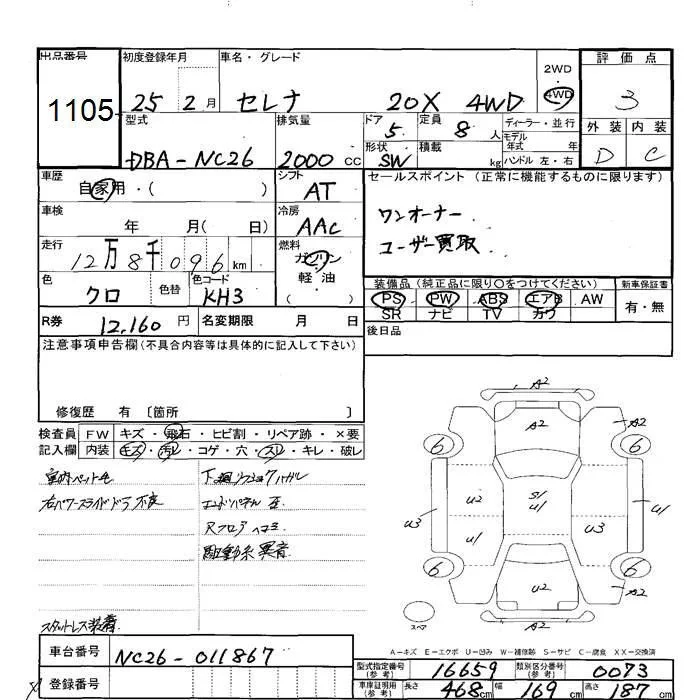 出品番号 1105
初度登録年月 25 2月
車名・グレード セレナ 20X 4WD
2WD
4WD
評価点 3
外装 内装
D C
型式 DBA-NC26
排気量 2000 CC
ドア 5
定員 8人
形状 SW
積載 kg
ディーラー・並行
モデル年式 年式
ハンドル 左・右
車歴 自家用・( )
シフト AT
車検 年 月( 日)
冷房 AAC
走行 12万8千096km
燃料 ガソリン・軽油 ( )
色 クロ 色替 色コード KH3
R券 12,160円 名変期限 月 日
セールスポイント(正常に機能するものに限ります)
ワンオーナー
ユーザー買取
装備品(純正品に限り○をつけてください)
PS PW ABS エアB AW
SR ナビ TV カワ
新車保証書
有・無
後日品
注意事項申告欄(不具合内容等は具体的に記入して下さい)
修復歴 有〔箇所 〕
検査員 FW キズ・飛石・ヒビ割・リペア跡・×要
記入欄 内装 キズ・汚レ・コゲ・穴・スレ・キレ・破レ
室内ペット毛
右パワースライドドア不良
スタットレス装着
下廻りフショクハガレ
エンドパネル 歪
Rフロア ヘコミ
駆動系異音
A2
A2 A2
6 6
U2 S1 U1
U3 U1 U3 U1
6 6
U2 A2
A2
スペア
A-キズ E-エクボ U-凹み W-補修跡 S-サビ C-腐食 XX-交換済
車台番号 NC26-011867
登録番号
型式指定番号(参考) 16659 類別区分番号(参考) 0073
車庫証明用(参考) 長さ 468cm 幅 169cm 高さ 187cm